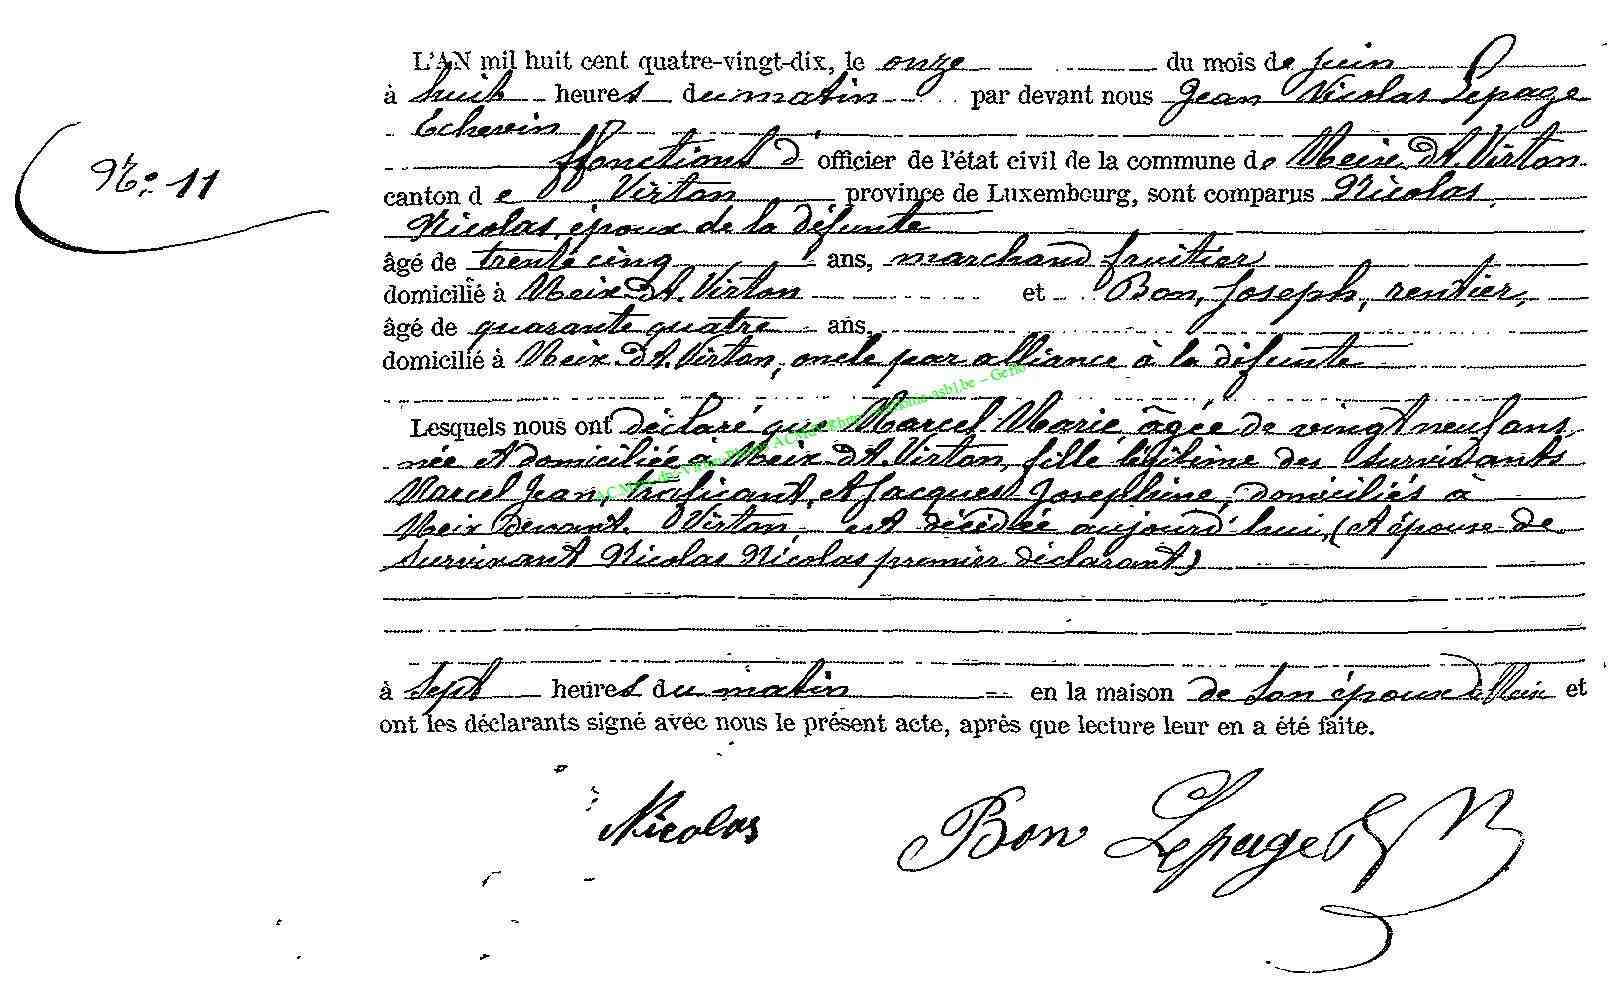 L'AN mil huit cent quatre-vingt-dix, le onze du mois de juin
à huit heures du matin par devant nous Jean Nicolas Lepage
Echevin
N° 11
ffonctions d' officier de l'état civil de la commune de Meix dt. Virton
canton de Virton province de Luxembourg, sont comparus Nicolas,
Nicolas, époux de la défunte
âgé de trente cinq ans, marchand fruitier
domicilié à Meix dt. Virton et Bon, Joseph, rentier,
âgé de quarante quatre ans,
domicilié à Meix dt. Virton, oncle par alliance à la défunte
Lesquels nous ont déclaré que Marcel Marie, âgée de vingt neuf ans,
née et domiciliée à Meix dt. Virton, fille légitime des survivants
Marcel Jean, traficant, et Jacques Josephine, domiciliés à
Meix devant Virton, est décédée aujourd'hui, (et épouse de
survivant Nicolas Nicolas premier déclarant)
à sept heures du matin en la maison de son époux à Meix et
ont les déclarants signé avec nous le présent acte, après que lecture leur en a été faite.
Nicolas Bon Lepage JN